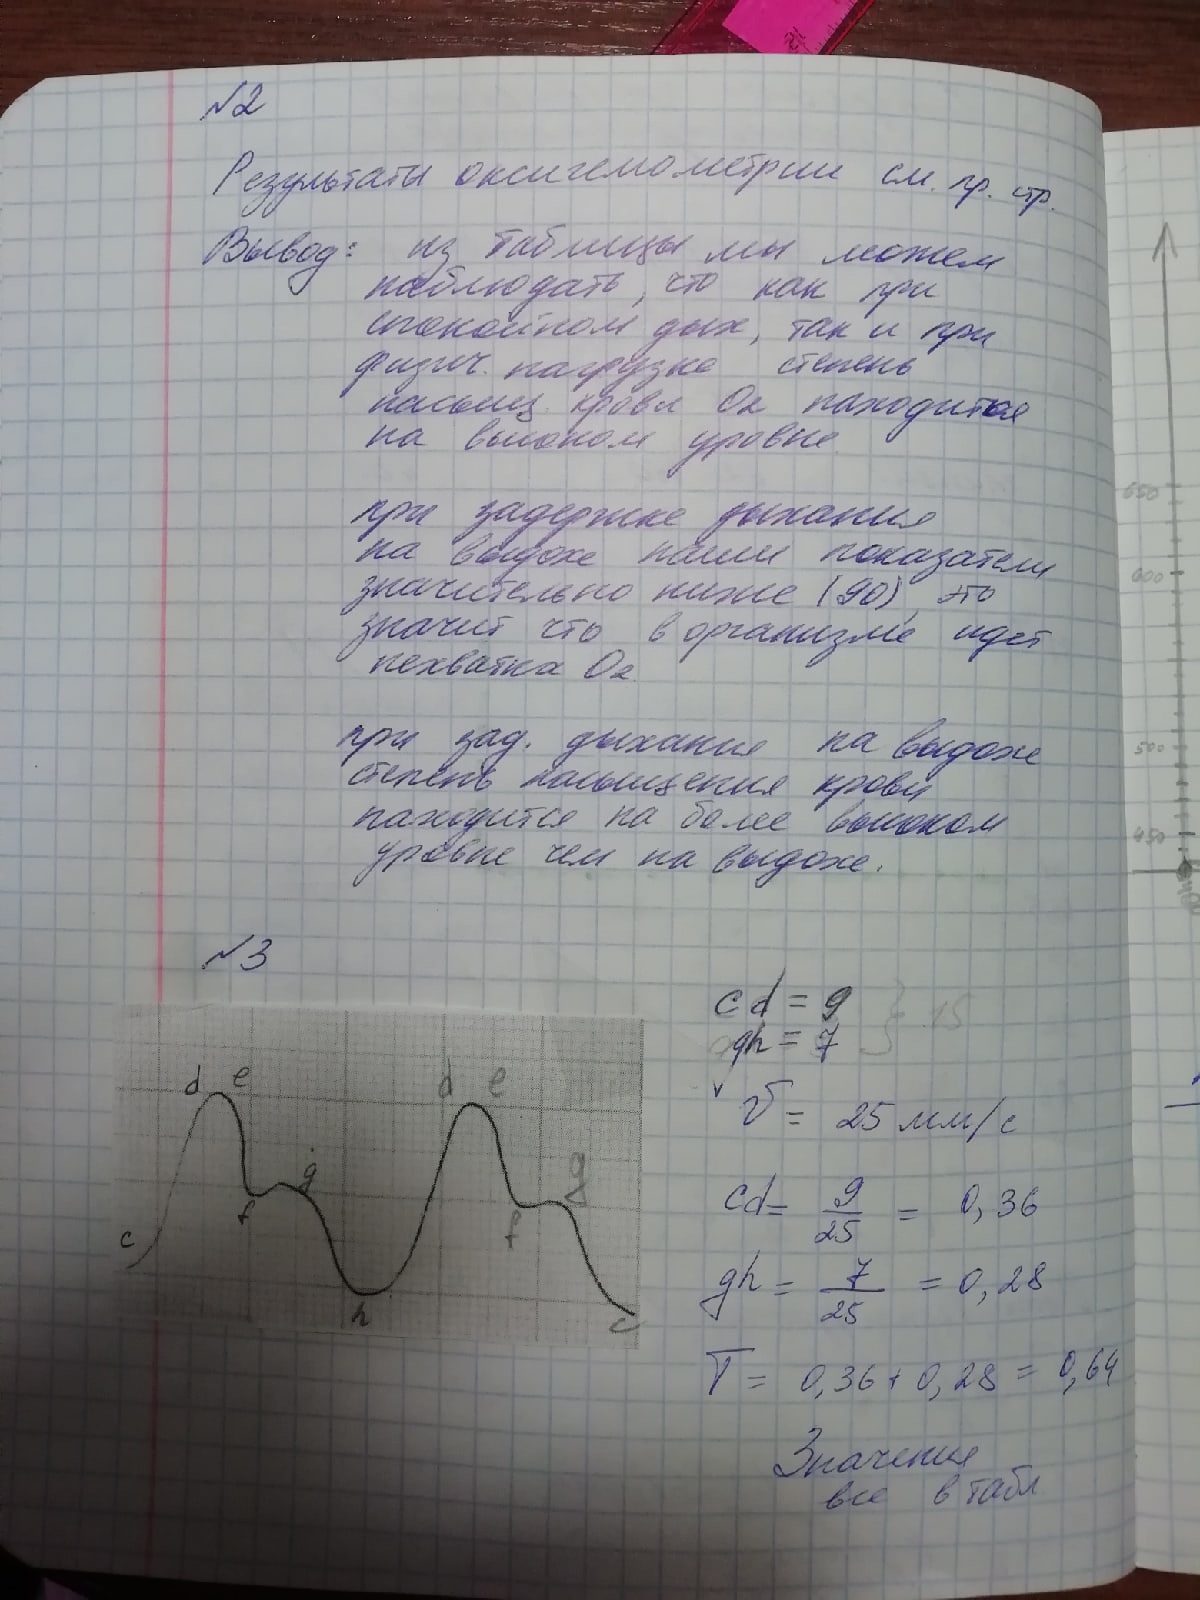 №2
Результаты оксигемометрии см. пр. стр.
Вывод: из таблицы мы можем
наблюдать, что как при
спокойном дых, так и при
физич. нагрузке степень
насыщ. крови O2 находится
на высоком уровне.
при задержке дыхания
на выдохе наши показатели
значительно ниже (90), это
значит что в организме идет
нехватка O2
при зад. дыхания на выдохе
степень насыщения крови
находится на более высоком
уровне чем на выдохе.
№3
cd = 9
gh = 7 } 15
V = 25 мм/с
cd = 9/25 = 0,36
gh = 7/25 = 0,28
T = 0,36 + 0,28 = 0,64
Значения
все в табл
d e d e
g g
c f f
h c
650
600
500
450